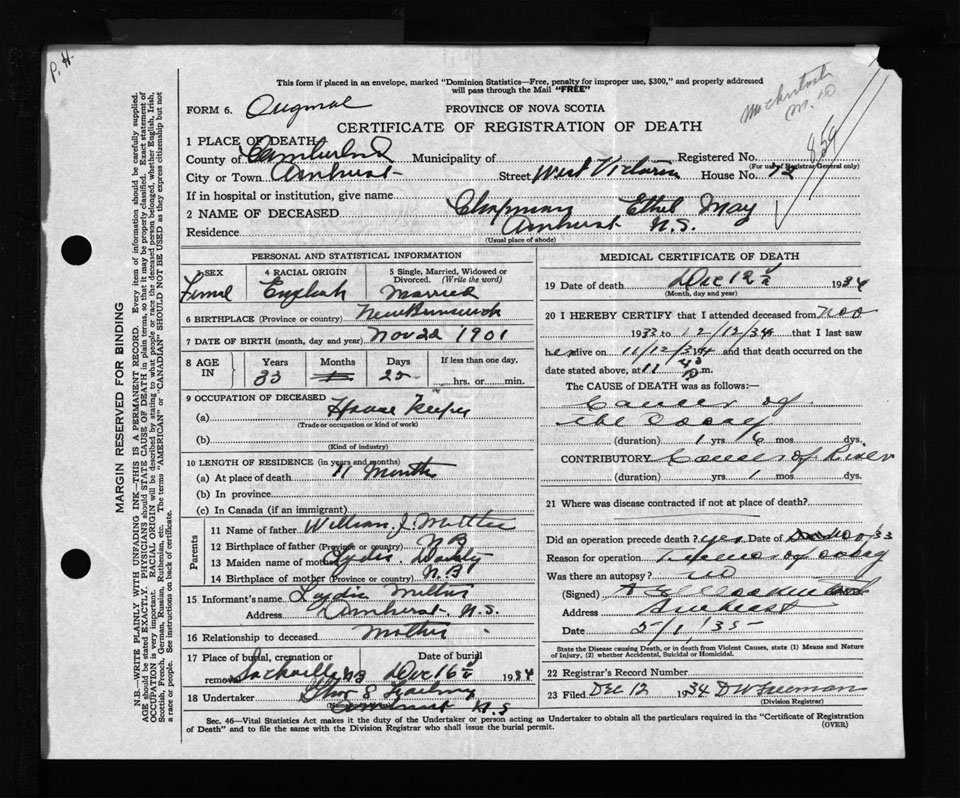 P. H.
This form if placed in an envelope, marked "Dominion Statistics—Free, penalty for improper use, $300," and properly addressed
will pass through the Mail "FREE"
FORM 6.
PROVINCE OF NOVA SCOTIA
McKintosh
M.D
859
CERTIFICATE OF REGISTRATION OF DEATH
1 PLACE OF DEATH
County of Cumberland Municipality of Registered No.
(For use of Registrar General only)
City or Town Amherst Street West Victoria House No. 72
If in hospital or institution, give name
2 NAME OF DECEASED Chapman Ethel May
Residence Amherst N.S.
(Usual place of abode)
PERSONAL AND STATISTICAL INFORMATION
3 SEX 4 RACIAL ORIGIN 5 Single, Married, Widowed or Divorced. (Write the word)
Femal English Married
6 BIRTHPLACE (Province or country) New Brunswick
7 DATE OF BIRTH (month, day and year) Nov 22 1901
8 AGE IN Years Months Days If less than one day,
33 22 hrs. or min.
9 OCCUPATION OF DECEASED
(a) House Keeper
(Trade or occupation or kind of work)
(b)
(Kind of industry)
10 LENGTH OF RESIDENCE (in years and months)
(a) At place of death 11 Months
(b) In province
(c) In Canada (if an immigrant)
Parents
11 Name of father William J.
12 Birthplace of father (Province or country) N B
13 Maiden name of mother Lydia
14 Birthplace of mother (Province or country) N.B
15 Informant's name Lydia
Address Amherst N.S.
16 Relationship to deceased Mother
17 Place of burial, cremation or removal Date of burial
Sackville NB Dec 16th 1934
18 Undertaker
Amherst N.S
MEDICAL CERTIFICATE OF DEATH
19 Date of death Dec 12th 1934
(Month, day and year)
20 I HEREBY CERTIFY that I attended deceased from Nov
1933 to 12/12/34 that I last saw
her alive on 11/12/34 and that death occurred on the
date stated above, at 11 m.
The CAUSE OF DEATH was as follows:—
Cancer of
the Ovary
(duration) 1 yrs 6 mos. dys.
CONTRIBUTORY Cancer of Liver
(duration) yrs. 1 mos. dys.
21 Where was disease contracted if not at place of death?
Did an operation precede death? yes. Date of Nov 33
Reason for operation of ovary
Was there an autopsy? no
(Signed)
Address Amherst
Date 5/1/35
State the Disease causing Death, or in death from Violent Causes, state (1) Means and Nature
of Injury, (2) whether Accidental, Suicidal or Homicidal.
22 Registrar's Record Number
23 Filed Dec 12 1934 D W Freeman
(Division Registrar)
Sec. 46—Vital Statistics Act makes it the duty of the Undertaker or person acting as Undertaker to obtain all the particulars required in the "Certificate of Registration
of Death" and to file the same with the Division Registrar who shall issue the burial permit.
(OVER)
MARGIN RESERVED FOR BINDING
N.B.—WRITE PLAINLY WITH UNFADING INK—THIS IS A PERMANENT RECORD. Every item of information should be carefully supplied.
AGE should be stated EXACTLY. PHYSICIANS should STATE CAUSE OF DEATH in plain terms, so that it may be properly classified. Exact statement of
OCCUPATION is very important. RACIAL ORIGIN will be described by stating to what people or race the deceased person belonged, whether English, Irish,
Scottish, French, German, Russian, Ruthenian, etc. The terms "AMERICAN" or "CANADIAN" SHOULD NOT BE USED as they express citizenship but not
a race or people. See instructions on back of certificate.